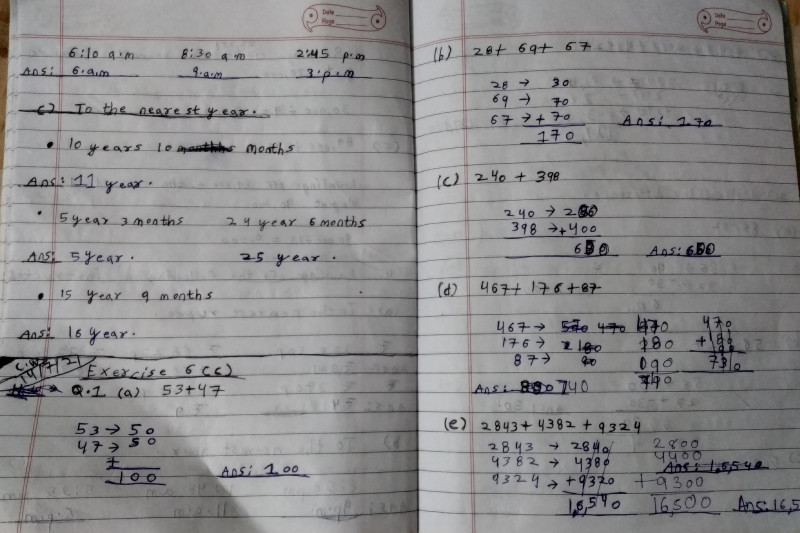 Date
Page
6:10 a.m 8:30 a m 2:45 p.m
Ans: 6.a.m 9.a.m 3.p.m
c) To the nearest year.
• 10 years 10 months
Ans: 11 year.
• 5 year 3 months 24 year 6 months
Ans: 5 year. 25 year.
• 15 year 9 months
Ans: 16 year.
Exercise 6 (C)
Q.1 (a) 53+47
53 → 50
47 → 50
+
100 Ans: 100
Date
Page
(b) 28+ 69+ 67
28 → 30
69 → 70
67 → + 70 Ans: 170
170
(c) 240 + 398
240 →
398 → +400
Ans:
(d) 467+ 176 +87
467 → 470 470
176 → 180 180
87 → 090
Ans: 740
(e) 2843 + 4382 + 9324
2843 → 2840 2800
4382 → 4380 4400
Ans: 16,540
9324 → +9320 +9300
16,540 16,500 Ans: 16,5